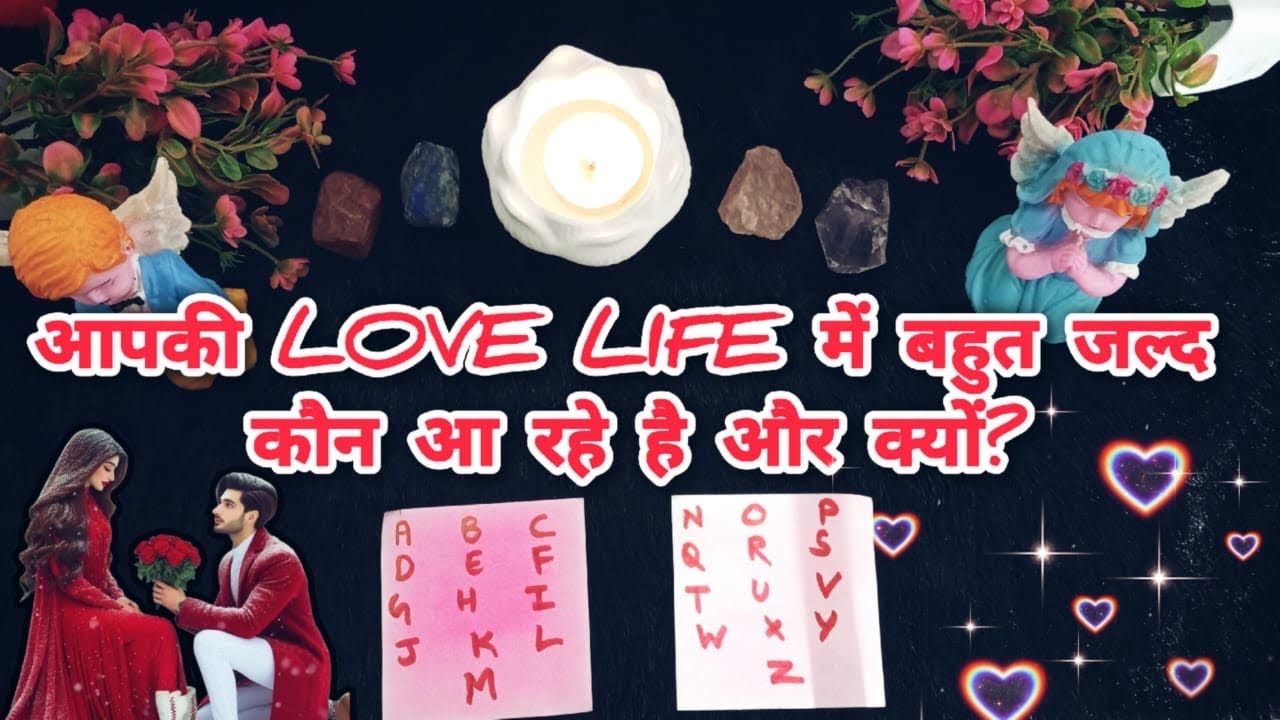 आपकी LOVE LIFE में बहुत जल्द
कौन आ रहे है और क्यों?
A B C
D E F
G H I
J K L
M
N O P
Q R S
T U V
W X Y
Z